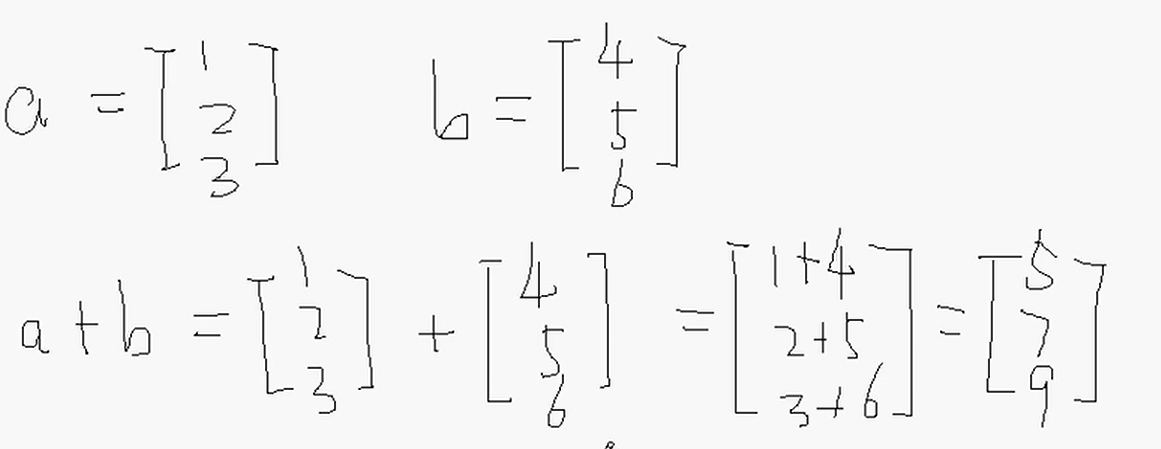 a = [1 2 3] b = [4 5 6]
a + b = [1 2 3] + [4 5 6] = [1+4 2+5 3+6] = [5 7 9]